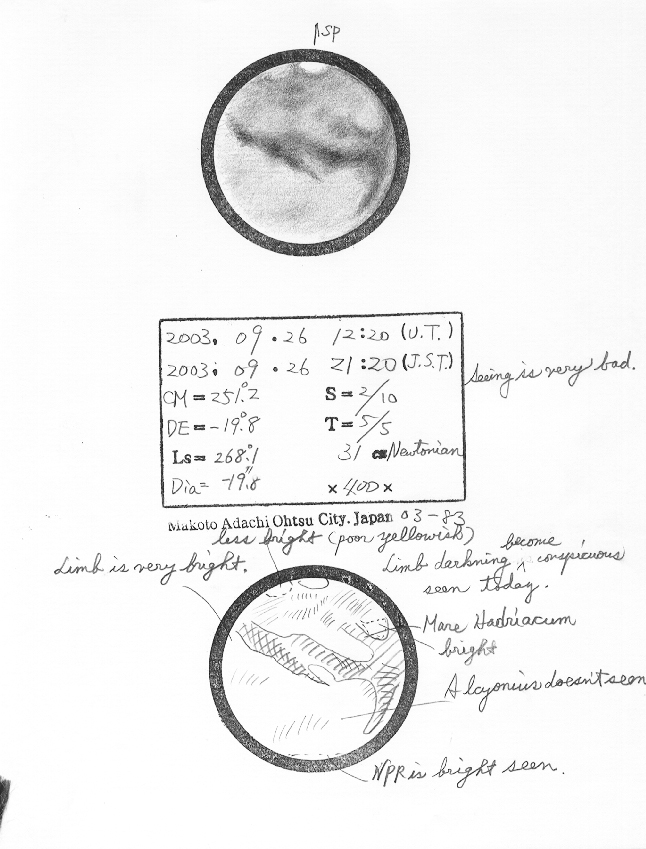 SP
2003. 09 . 26 12:20 (U.T.)
2003: 09 . 26 21:20 (J.S.T.)
CM = 251.°2 S = 2/10
DE = -19.°8 T = 5/5
Ls = 268.°1 31 cm Newtonian
Dia = -19.″8 × 400 ×
Seeing is very bad.
Makoto Adachi Ohtsu City. Japan 03-83
less bright (poor yellowish)
Limb is very bright.
Limb darkning become conspicuous
seen today.
Mare Hadriacum
bright
Alcyonius doesn't seen
NPR is bright seen.